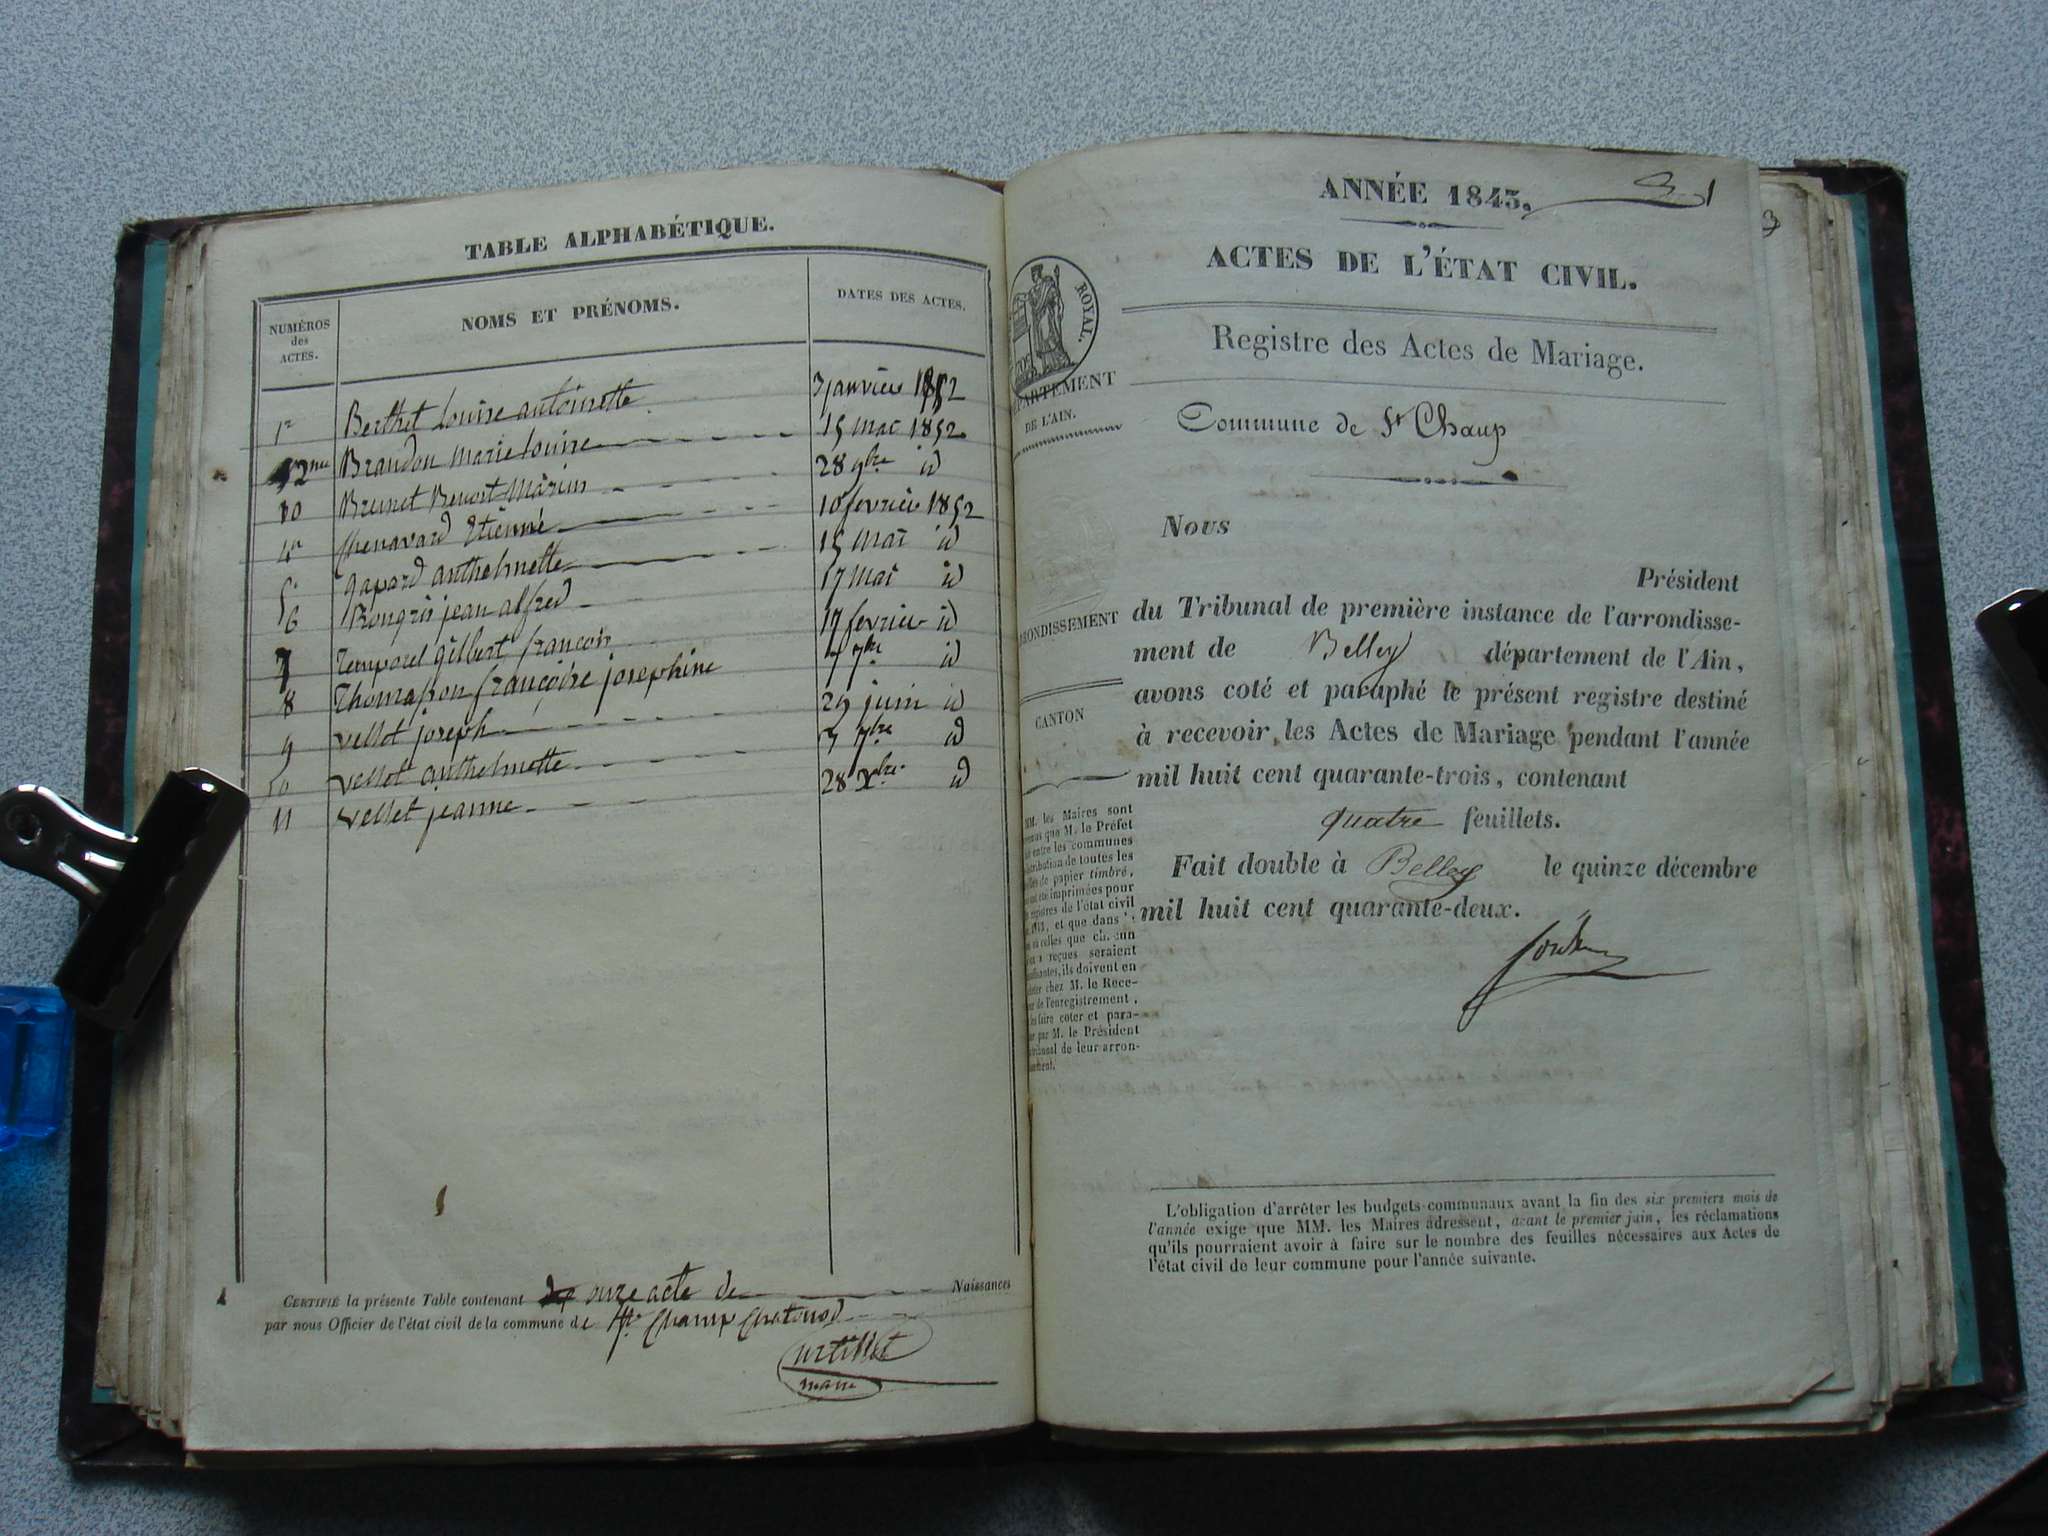 TABLE ALPHABÉTIQUE.
NUMÉROS
des
ACTES.
NOMS ET PRÉNOMS.
DATES DES ACTES.
1er Berthet Louise antoinette 3 janvier 1852
2me Brandon Marie Louise 15 mai 1852
10 Brunet Benoit Marin 28 9bre id
4 Chenavard Etienne 10 fevrier 1852
5 gapard anthelmette 15 Mai id
6 Rongris jean alfred 17 Mai id
7 Temporel gilbert françois 17 fevrier id
8 Thomasson françoise josephine 7 7bre id
9 vellet joseph 29 juin id
10 vellet anthelmette 3 7bre id
11 vellet jeanne 28 Xbre id
CERTIFIÉ la présente Table contenant onze acte de Naissances
par nous Officier de l'état civil de la commune de St Champ Chatonod
maire
ANNÉE 1843.
1
3
ACTES DE L'ÉTAT CIVIL.
ROYAL.
Registre des Actes de Mariage.
DE L'AIN.
Commune de St Champ
Nous
Président
du Tribunal de première instance de l'arrondisse-
ment de Belley département de l'Ain,
avons coté et paraphé le présent registre destiné
à recevoir les Actes de Mariage pendant l'année
mil huit cent quarante-trois, contenant
quatre feuillets.
Fait double à Belley le quinze décembre
mil huit cent quarante-deux.
CANTON
MM. les Maires sont
que M. le Préfet
entre les communes
de toutes les
de papier timbré,
été imprimées pour
registres de l'état civil
et que dans
celles que
reçues seraient
ils doivent en
chez M. le Rece-
de l'enregistrement,
faire coter et para-
par M. le Président
tribunal de leur arron-
L'obligation d'arrêter les budgets communaux avant la fin des six premiers mois de
l'année exige que MM. les Maires adressent, avant le premier juin, les réclamations
qu'ils pourraient avoir à faire sur le nombre des feuilles nécessaires aux Actes de
l'état civil de leur commune pour l'année suivante.